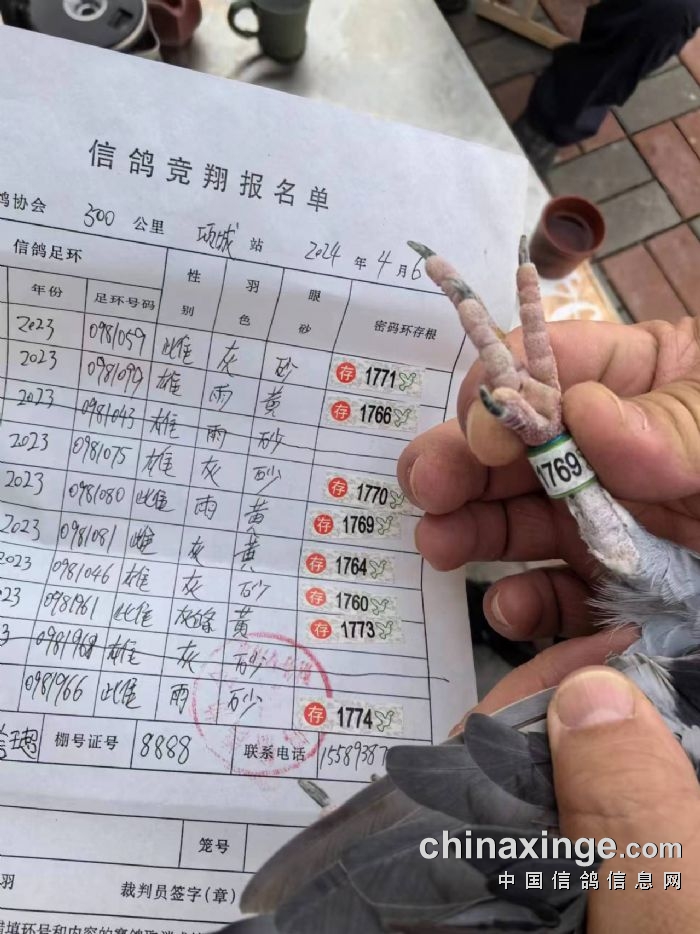 信鸽竞翔报名单
鸽协会 300 公里 项城 站 2024 年 4 月 6
信鸽足环 性别 羽色 眼砂 密码环存根
年份 足环号码
2023 0981059 雌 灰 砂 存 1771
2023 0981099 雄 雨 黄 存 1766
2023 0981043 雄 雨 砂
2023 0981075 雄 灰 砂 存 1770
2023 0981080 雌 雨 黄 存 1769
2023 0981081 雌 灰 黄 存 1764
2023 0981046 雄 灰 砂 存 1760
023 0981961 雌 灰 黄 存 1773
3 0981968 雄 灰 砂
0981966 雌 雨 砂 存 1774
棚号证号 8888 联系电话 15589387
笼号
羽 裁判员签字(章)
填环号和内容的赛鸽取消
1769
chinaxinge.com
中国信鸽信息网